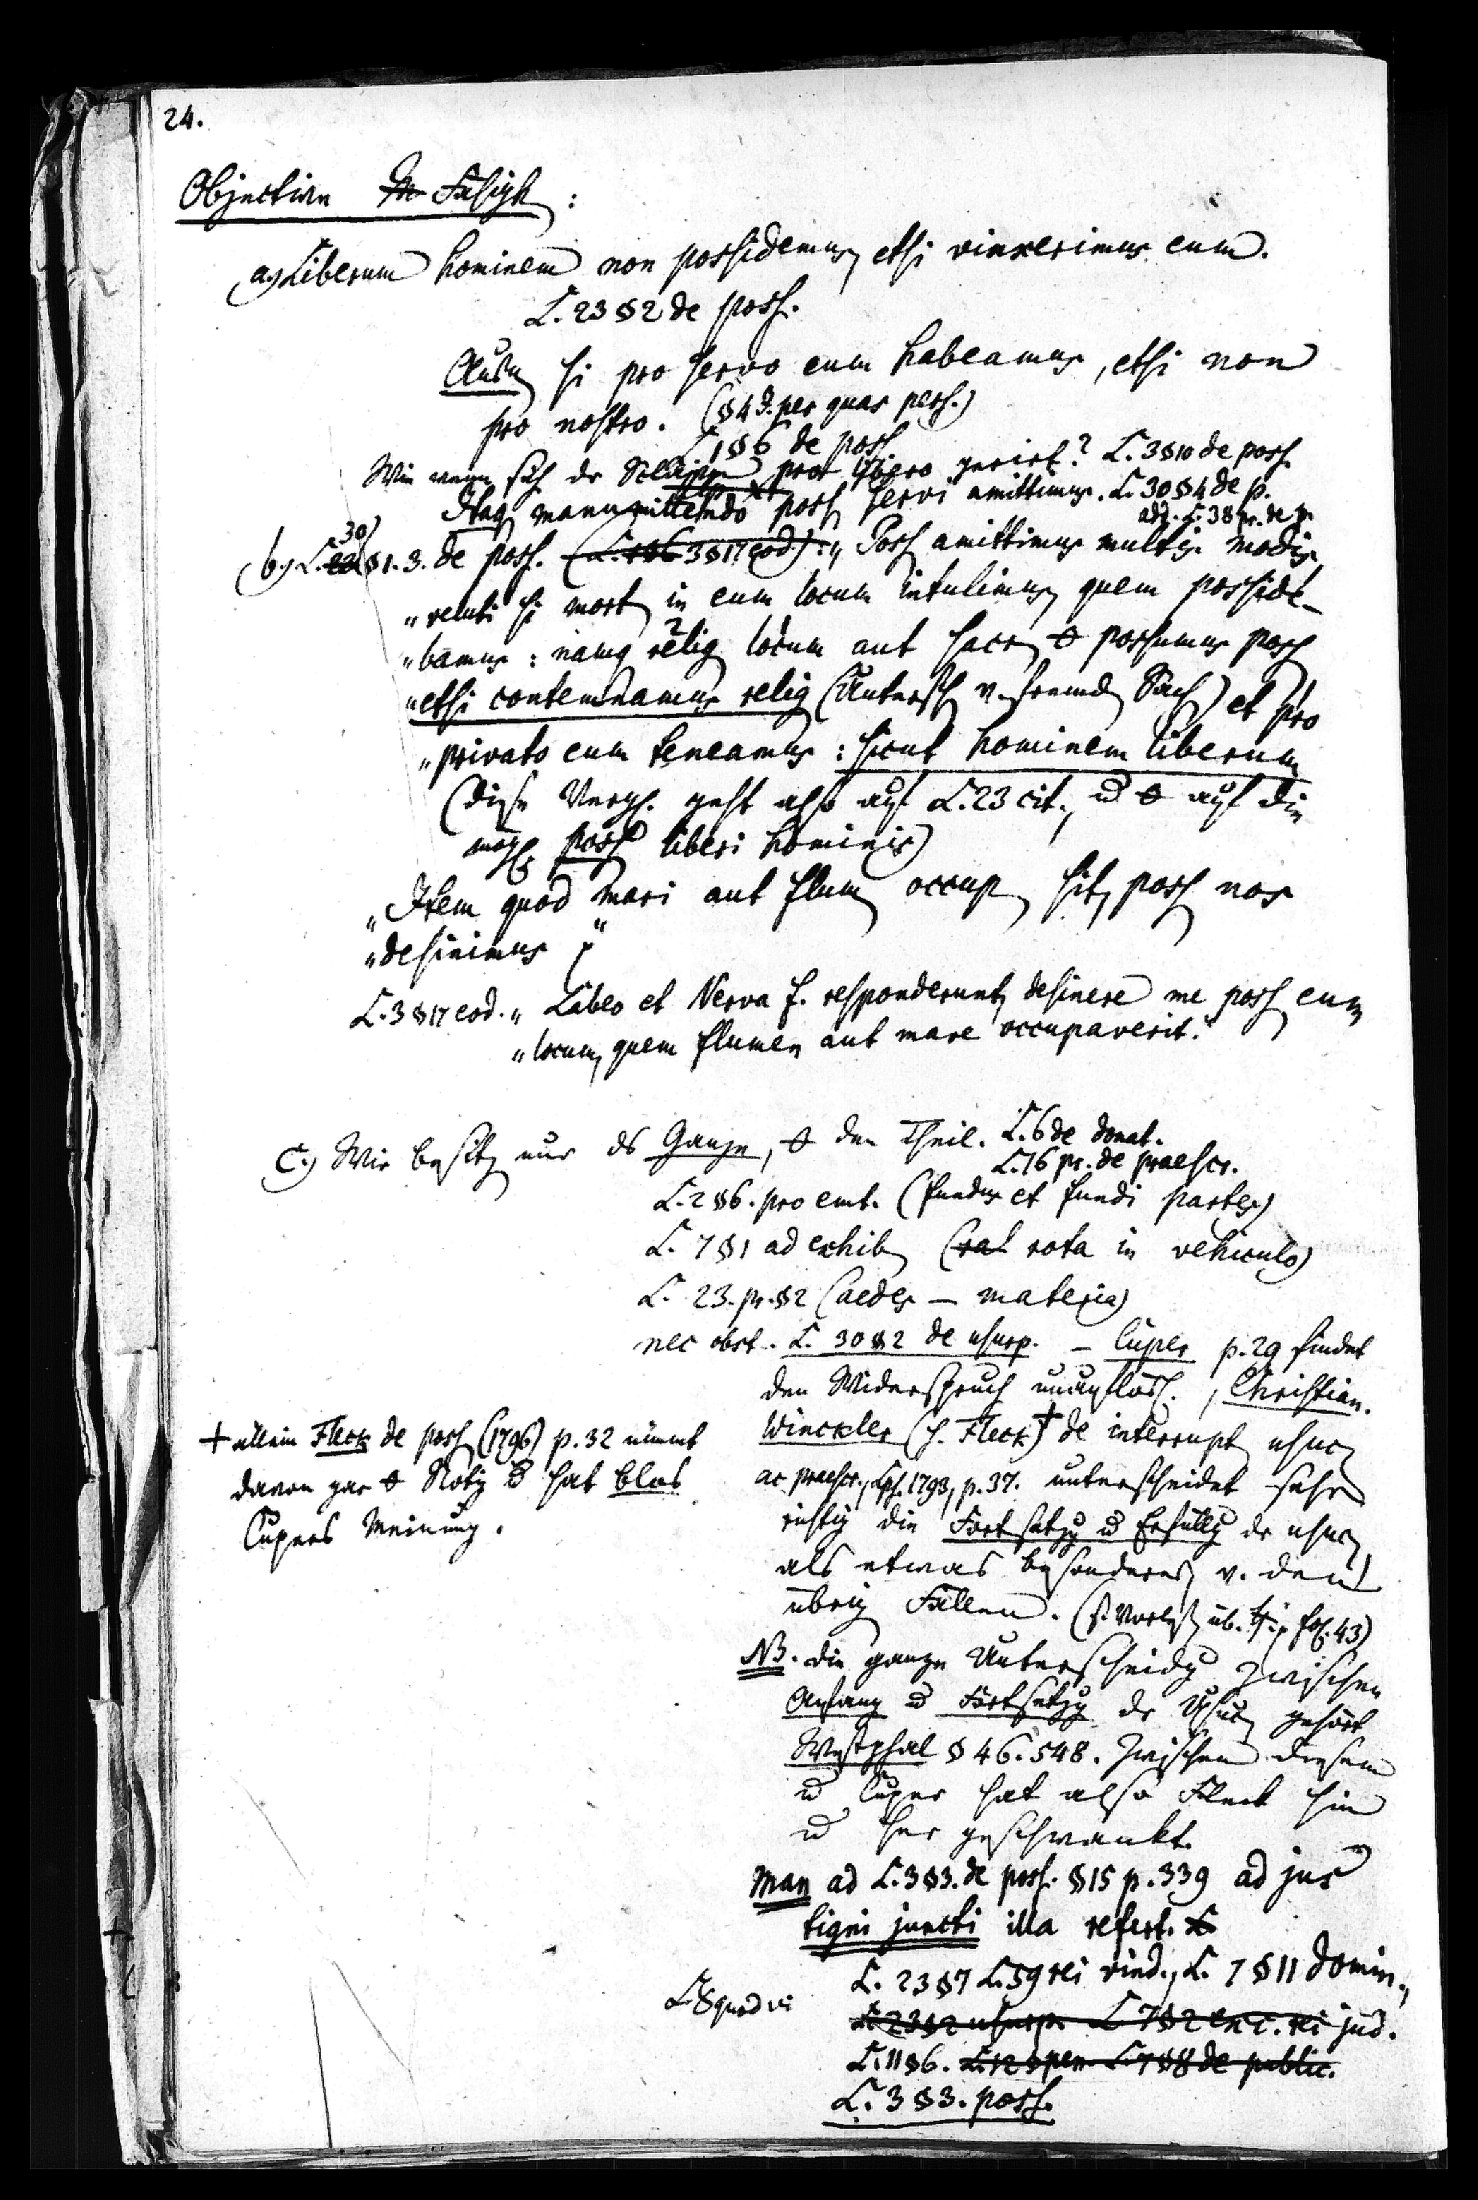 24.
Objective Fähigk:
a.) Liberum hominem non possidemus, etsi vinxerimus eum.
L. 23 § 2 de poss.
Anders si pro servo eum habeamus, etsi non
pro nostro. (§ 4 J. per quas pers.)
L. 1 § 6 de poss
Wie wenn sich der Sclave pro libero gerirt? L. 3 § 10 de poss.
Itaq manumittendo poss servi amittimus. L. 30 § 4 de p.
adj. L. 38 pr. de p.
b.) L. 30 § 1. 3. de poss. (L. 3 § 17 eod.) : „Poss amittimus multis modis
„veluti si mort in eum locum intulimus, quem posside-
„bamus : namq relig locum aut sacr + possumus poss
„etsi contemnamus relig (Untersch v. fremd Sach) et pro
„privato eum teneamus : sicut hominem liberum
(diese Vergl. geht also auf L. 23 cit., u + auf die
mögl. poss liberi hominis)
„Item quod mari aut flum occup sit, poss nos
„desinimus“
L. 3 § 17 eod. „Labeo et Nerva f. responderunt, desinere me poss eum
„locum, quem flumen aut mare occupaverit.“
c.) Wir besitz nur ds Ganze, + den Theil. L. 6 de donat.
L. 16 pr. de praescr.
L. 2 § 6. pro emt. (fundus et fundi partes)
L. 7 § 1 ad exhib (rat rota in vehiculo)
L. 23. pr. § 2 (aedes — materia)
nec obst. L. 30 § 2 de usurp. — Cuper p. 29 findet
den Widerspruch unauflösl., Christian.
Winckler (s. Fleck)† de interrupt usuc
ac praescr., Lps. 1793, p. 37. unterscheidet sehr
richtig die Fortsetzg u Erfüllg dr usuc
als etwas besonderes v. den
übrig Fällen. (s. fol. 43)
† allein Fleck de poss (1796) p. 32 nimmt
davon gar + Notiz u hat blos
Cupers Meinung.
NB. die ganze Unterscheidg zwischen
Anfang u Fortsetzg dr Usuc gehört
Westphal § 46. 548. Zwischen diesem
u Cuper hat also Fleck hin
u her geschwankt.
Man ad L. 3 § 3. de poss. § 15 p. 339 ad jus
tigni juncti illa refert.
L. 23 § 7 L. 59 rei vind., L. 7 § 11 domin.,
L. 23 § 2 usurp. L 7 § 2 exc. rei jud.
L. 11 § 6. L. 12 § pen L. 7 § 8 de public.
L. 3 § 3. poss.